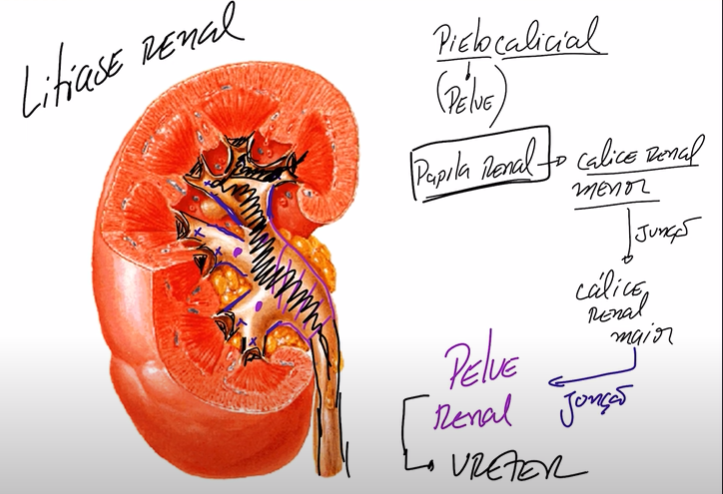 Litiase Renal
Pielocalicial
(Pelve)
Papila Renal → calice Renal
menor
Junção
cálice
Renal
maior
Junção
Pelve
Renal
URETER